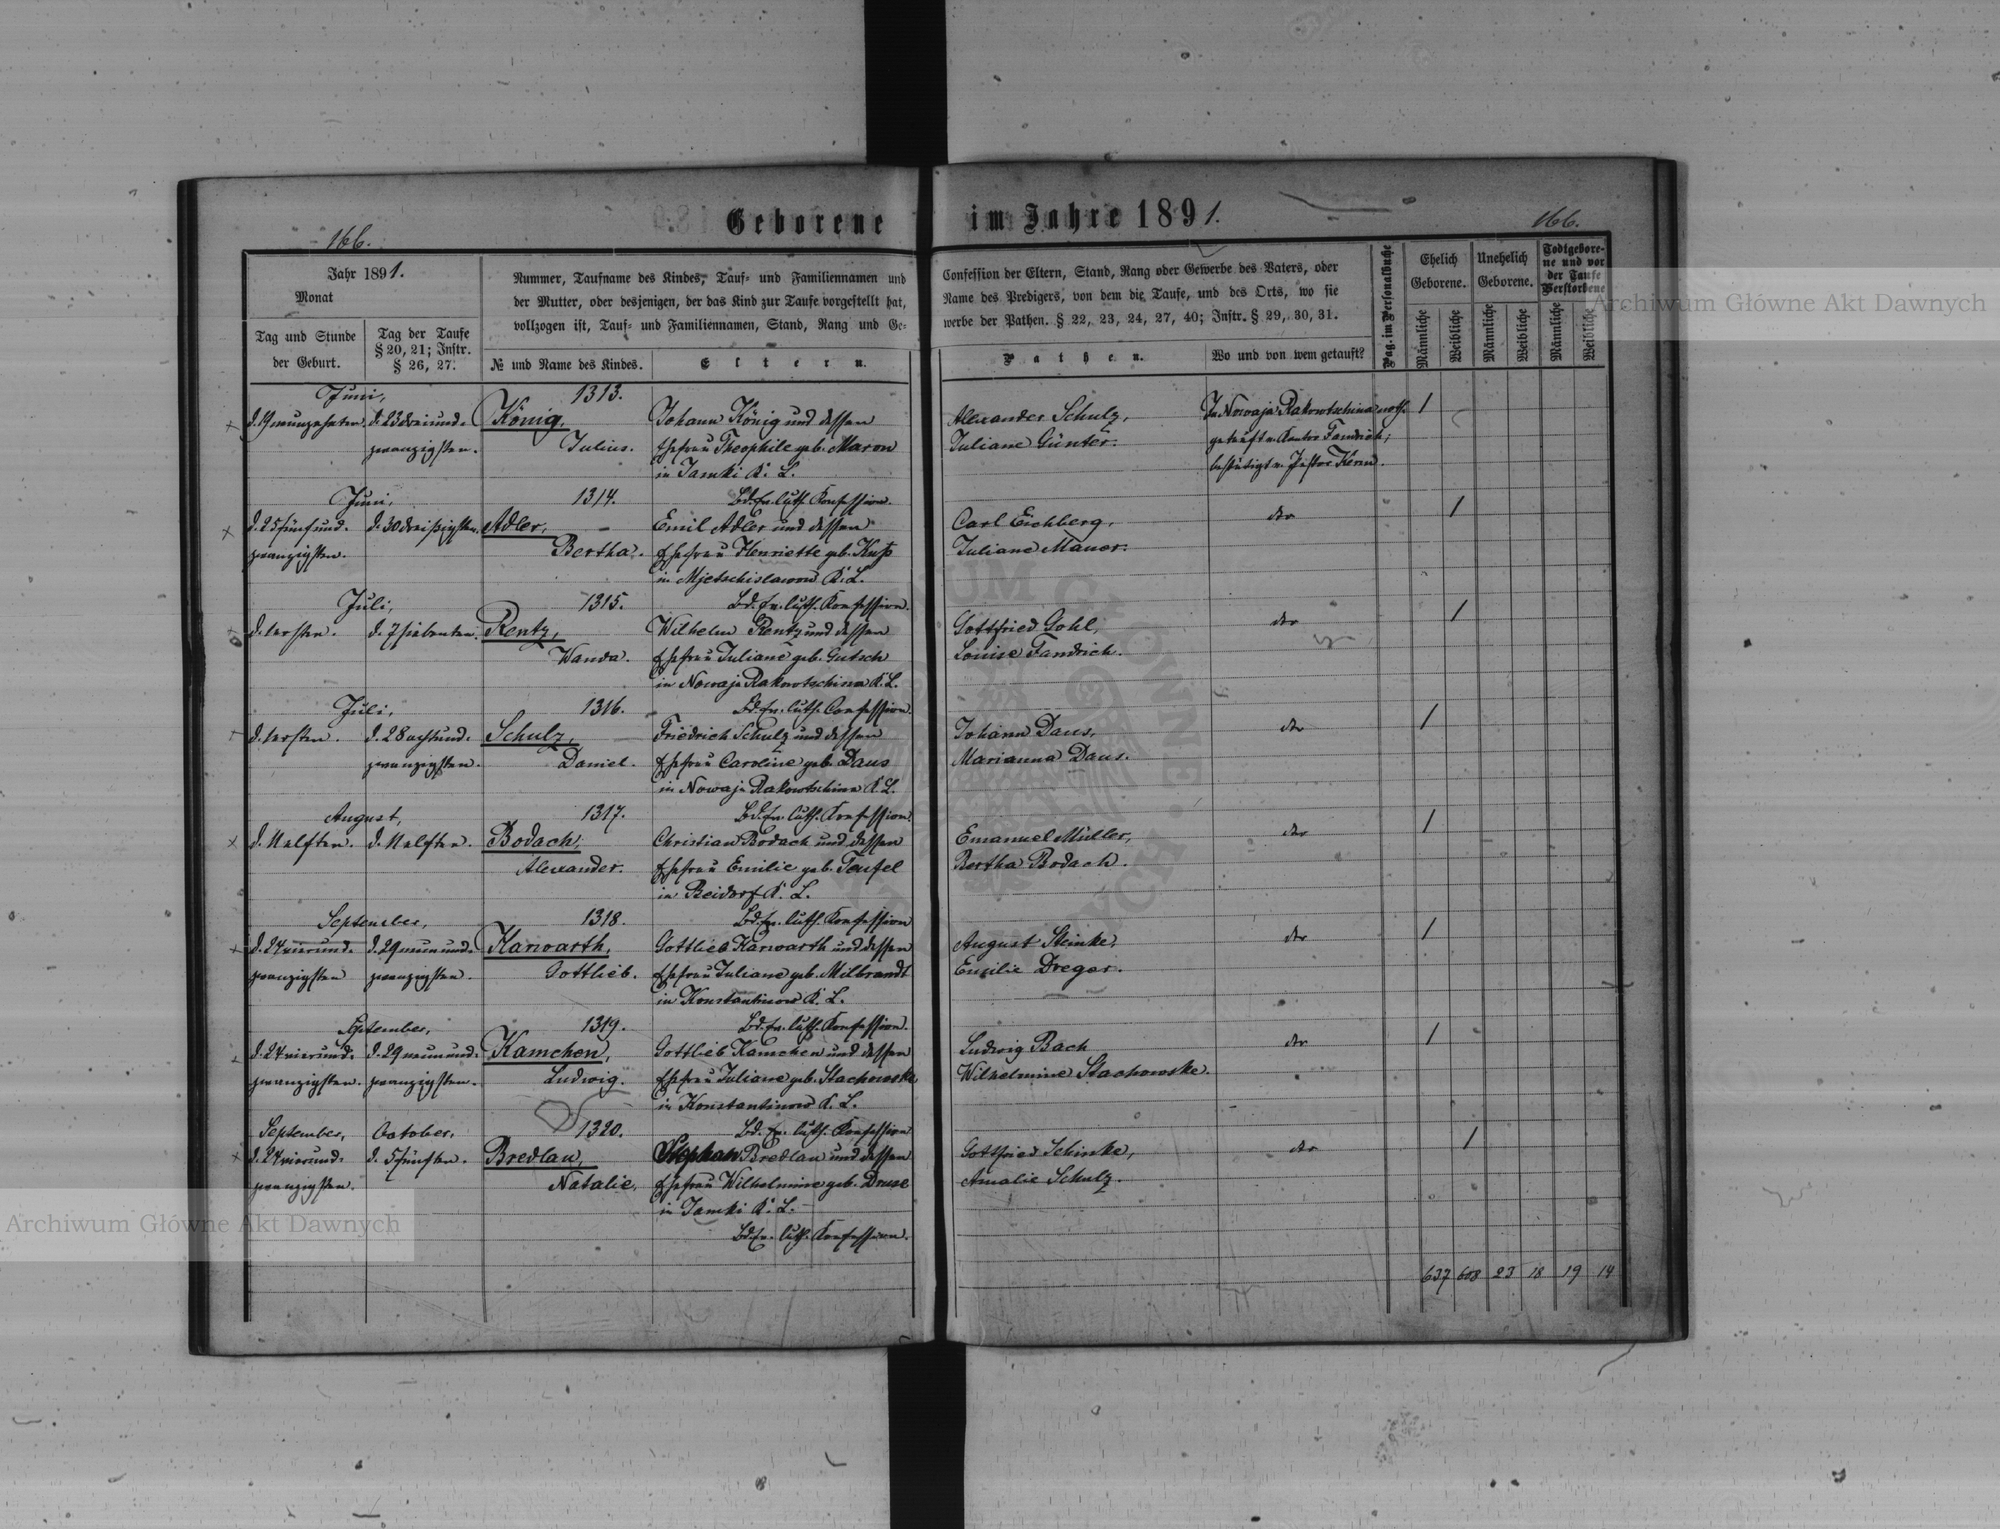 Geborene im Jahre 1891.
166.
166.
Jahr 1891.
Monat
Tag und Stunde
der Geburt.
Tag der Taufe
§ 20, 21; Instr.
§ 26, 27.
Nummer, Taufname des Kindes, Tauf- und Familiennamen und
der Mutter, oder desjenigen, der das Kind zur Taufe vorgestellt hat,
vollzogen ist, Tauf- und Familiennamen, Stand, Rang und Ge-
№ und Name des Kindes.
Eltern.
Confession der Eltern, Stand, Rang oder Gewerbe des Vaters, oder
Name des Predigers, von dem die Taufe, und des Orts, wo sie
werbe der Pathen. § 22, 23, 24, 27, 40; Instr. § 29, 30, 31.
Pathen.
Wo und von wem getauft?
Pag. im Personalbuche
Ehelich
Geborene.
Unehelich
Geborene.
Todtgebore-
ne und vor
der Taufe
Verstorbene
Männliche
Weibliche
Männliche
Weibliche
Männliche
Weibliche
Juni,
1313.
d. 19 neunzehnten. d. 23 dreiund- König, Johann König und dessen Alexander Schulz, In Nowaja Rakowtschina noth- 1
zwanzigsten. Julius. Ehefrau Theophile geb. Maron Juliane Günter. getauft v. Kantor Fandrich;
in Jamki K. L. bestätigt v. Pastor Kern.
Juni, 1314. Bd. Ev. luth. Konfession.
d. 25 fünfund- d. 30 dreißigsten. Adler, Emil Adler und dessen Carl Eichberg, do 1
zwanzigsten. Bertha. Ehefrau Henriette geb. Kuß Juliane Mauer.
in Mjetschislawow K. L.
Juli, 1315. Bd. Ev. luth. Konfession.
d. 1 ersten. d. 7 siebenten. Rentz, Wilhelm Rentz und dessen Gottfried Gohl, do 1
Wanda. Ehefrau Juliane geb. Gutsch Louise Fandrich.
in Nowaja Rakowtschina K. L.
Juli, 1316. Bd. Ev. luth. Confession.
d. 1 ersten. d. 28 achtund- Schulz, Friedrich Schulz und dessen Johann Daus, do 1
zwanzigsten. Daniel. Ehefrau Caroline geb. Daus Marianna Daus.
in Nowaja Rakowtschina K. L.
August, 1317. Bd. Ev. luth. Konfession.
d. 11 elften. d. 11 elften. Bodach, Christian Bodach und dessen Emanuel Müller, do 1
Alexander. Ehefrau Emilie geb. Teufel Bertha Bodach.
in Beidorf K. L.
September, 1318. Bd. Ev. luth. Konfession
d. 24 vierund- d. 29 neunund- Karwarth, Gottlieb Karwarth und dessen August Steinke, do 1
zwanzigsten zwanzigsten. Gottlieb. Ehefrau Juliane geb. Milbrandt Emilie Dreger.
in Konstantinow K. L.
September, 1319. Bd. Ev. luth. Konfession.
d. 24 vierund- d. 29 neunund- Kamchen, Gottlieb Kamchen und dessen Ludwig Bach do 1
zwanzigsten. zwanzigsten. Ludwig. Ehefrau Juliane geb. Stachowske Wilhelmine Stachowske.
in Konstantinow K. L.
September, October, 1320. Bd. Ev. luth. Konfession
d. 24 vierund- d. 5 fünften. Bredlau, Stephan Bredlau und dessen Gottfried Schinke, do 1
zwanzigsten. Natalie. Ehefrau Wilhelmine geb. Druse Amalie Schulz.
in Jamki K. L.
Bd. Ev. luth. Konfession.
637 608 23 18 19 14
Archiwum Główne Akt Dawnych
Archiwum Główne Akt Dawnych